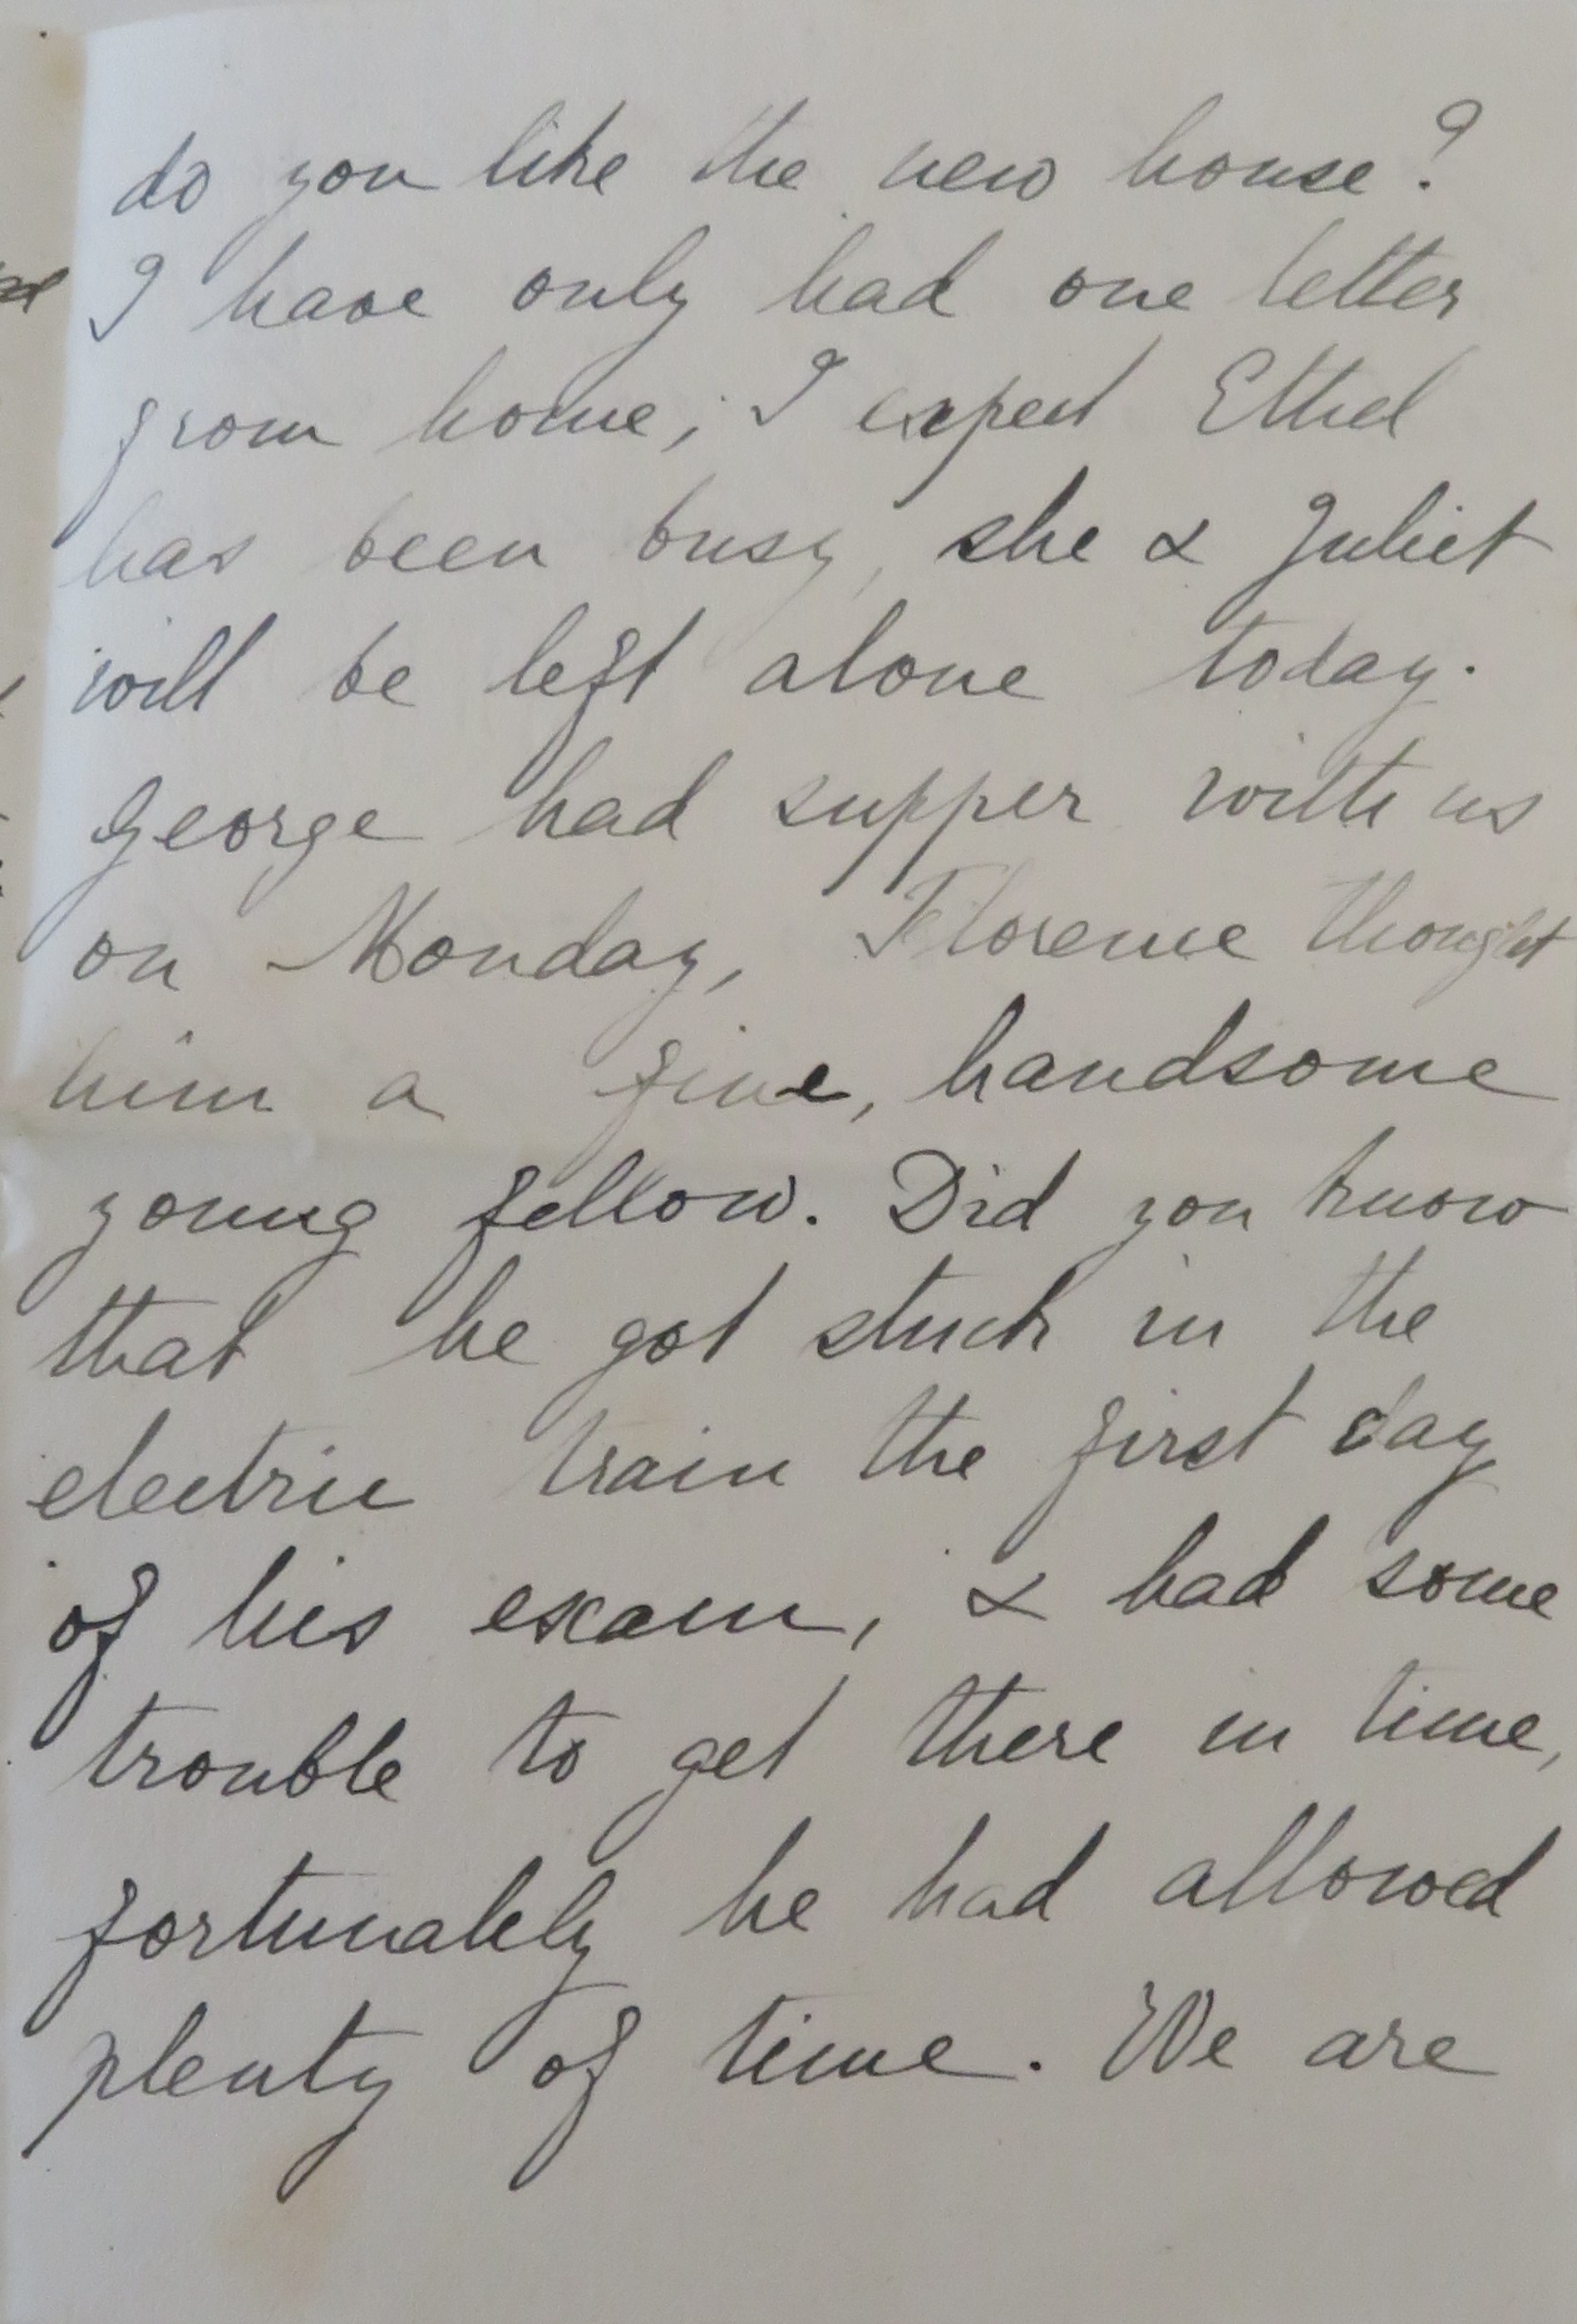 do you like the new house?
I have only had one letter
from home, I expect Ethel
has been busy, she & Juliet
will be left alone today.
George had supper with us
on Monday, Florence thought
him a fine, handsome
young fellow. Did you know
that he got stuck in the
electric train the first day
of his exam, & had some
trouble to get there in time,
fortunately he had allowed
plenty of time. We are